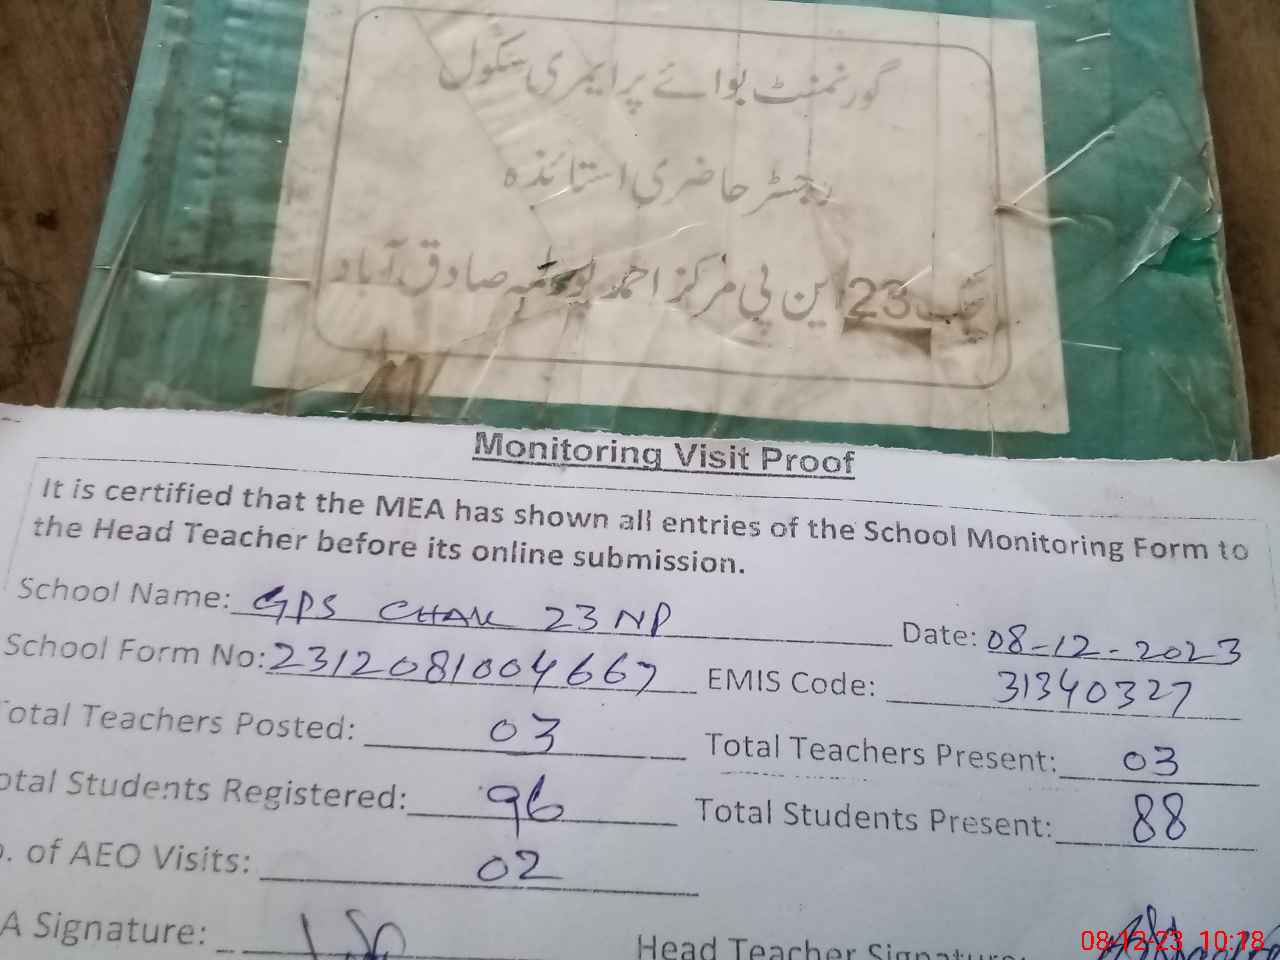 گورنمنٹ بوائے پرایمری سکول
رجسٹر حاضری استائذہ
چک 23 این پی مرکز احمد پور لمہ صادق آباد
Monitoring Visit Proof
It is certified that the MEA has shown all entries of the School Monitoring Form to
the Head Teacher before its online submission.
School Name: GPS CHAK 23 NP Date: 08-12-2023
School Form No: 2312081004667 EMIS Code: 31340327
Total Teachers Posted: 03 Total Teachers Present: 03
Total Students Registered: 96 Total Students Present: 88
of AEO Visits: 02
A Signature: Head Teacher Signature:
08-12-23 10:18